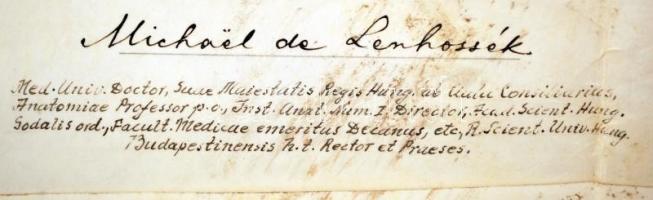 Michaël de Lenhossék
Med. Univ. Doctor, Suae Maiestatis Regis Hung. ab Aulae Consiliarius,
Anatomiae Professor p.o., Inst. Anat. Num. I Director, Acad. Scient. Hung.
Sodalis ord., Facult. Medicae emeritus Decanus, etc, R. Scient. Univ. Hung.
Budapestinensis h.t. Rector et Praeses.